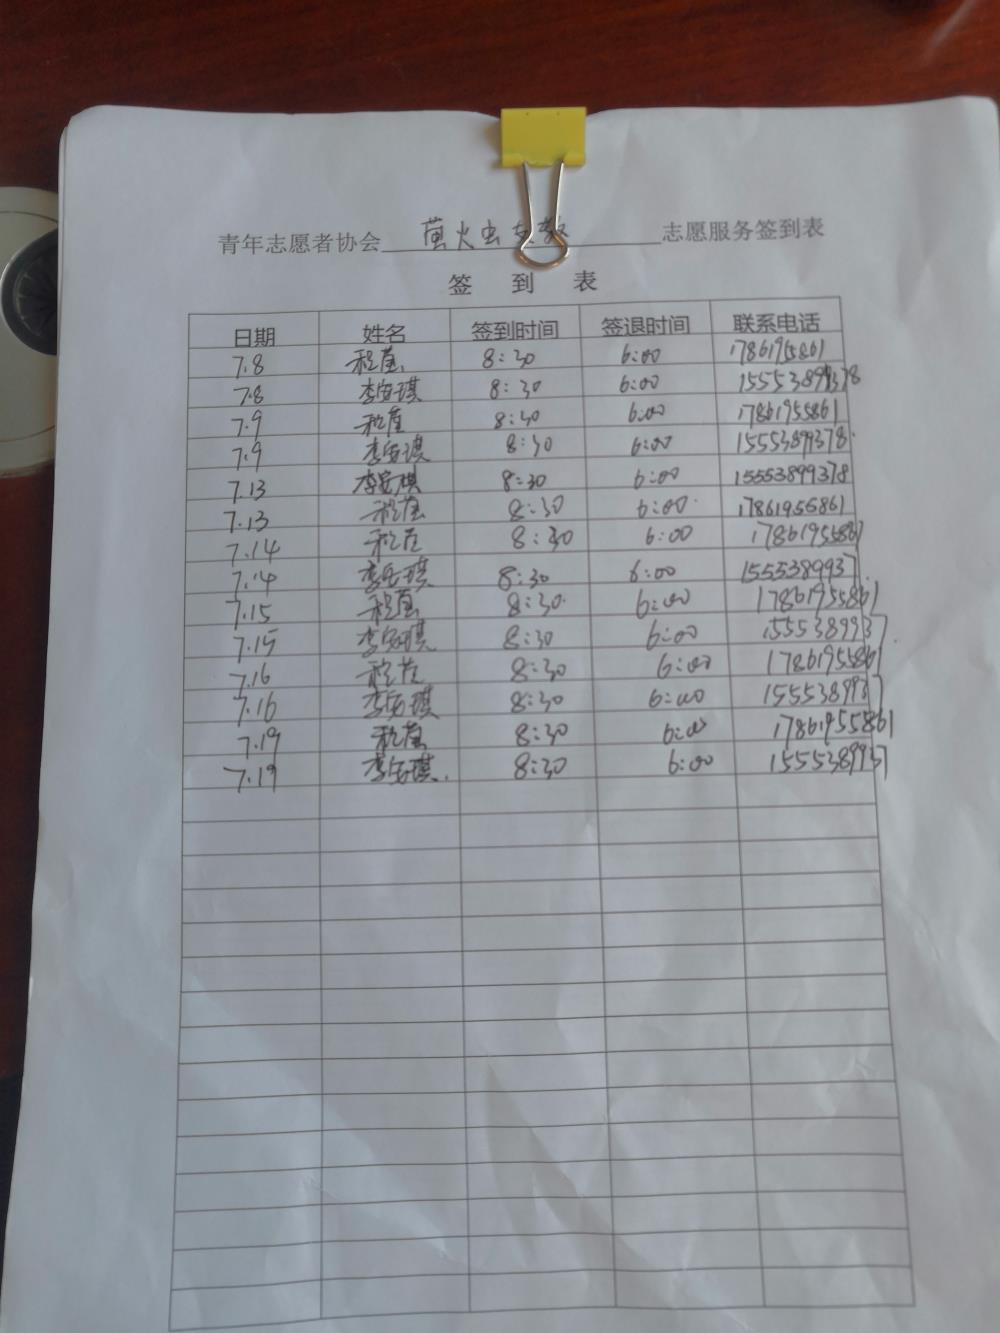 青年志愿者协会 萤火虫支教 志愿服务签到表
签 到 表
日期 姓名 签到时间 签退时间 联系电话
7.8 程萤 8:30 6:00 1786195861
7.8 李安琪 8:30 6:00 15553899378
7.9 程萤 8:30 6:00 17861955861
7.9 李安琪 8:30 6:00 15553899378
7.13 李安琪 8:30 6:00 15553899378
7.13 程萤 8:30 6:00 17861955861
7.14 程萤 8:30 6:00 17861955861
7.14 李安琪 8:30 6:00 1555389937
7.15 程萤 8:30 6:00 17861955861
7.15 李安琪 8:30 6:00 1555389937
7.16 程萤 8:30 6:00 17861955861
7.16 李安琪 8:30 6:00 1555389937
7.19 程萤 8:30 6:00 17861955861
7.19 李安琪 8:30 6:00 1555389937